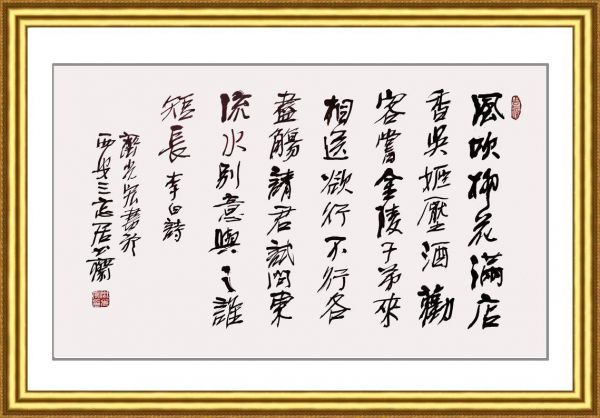 風吹柳花滿店
香吳姬壓酒勸
客嘗金陵子弟來
相送欲行不行各
盡觴請君試問東
流水別意與之誰
短長李白詩
光宏書於
三忘居